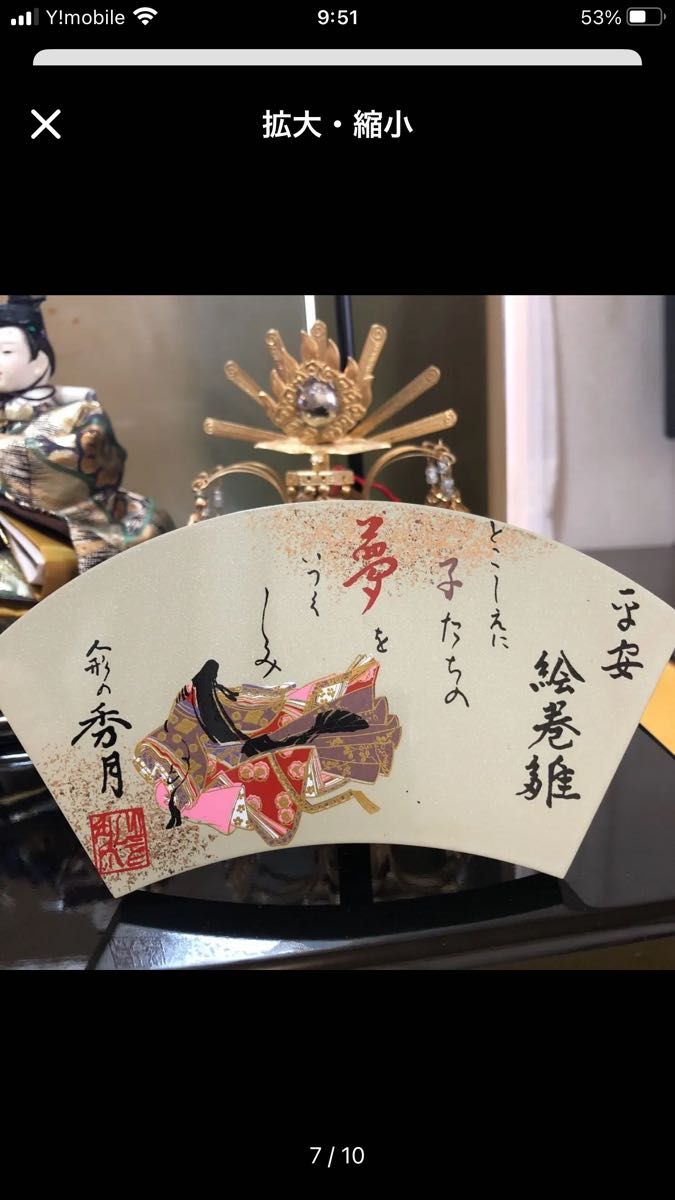 Y!mobile
9:51
53%
拡大・縮小
平安
絵巻雛
とこしえに
子たちの
夢を
いつく
しみ
人形の
秀月
7 / 10